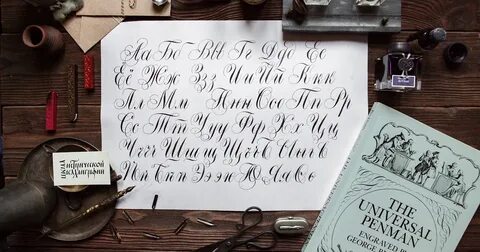 Аа Бб Вв Гг Дд Ее
Ёё Жж Ззз Ии Йй Ккк
Лл Мм Ннн Ооо Пп Рр
Сс Ттт Ууу Ффф Хх Цц
Чччч Шш Щщ ъ ы ь
Эээ Юю Яя
школа
исторической
каллиграфии
THE
UNIVERSAL
PENMAN
ENGRAVED BY
GEORGE